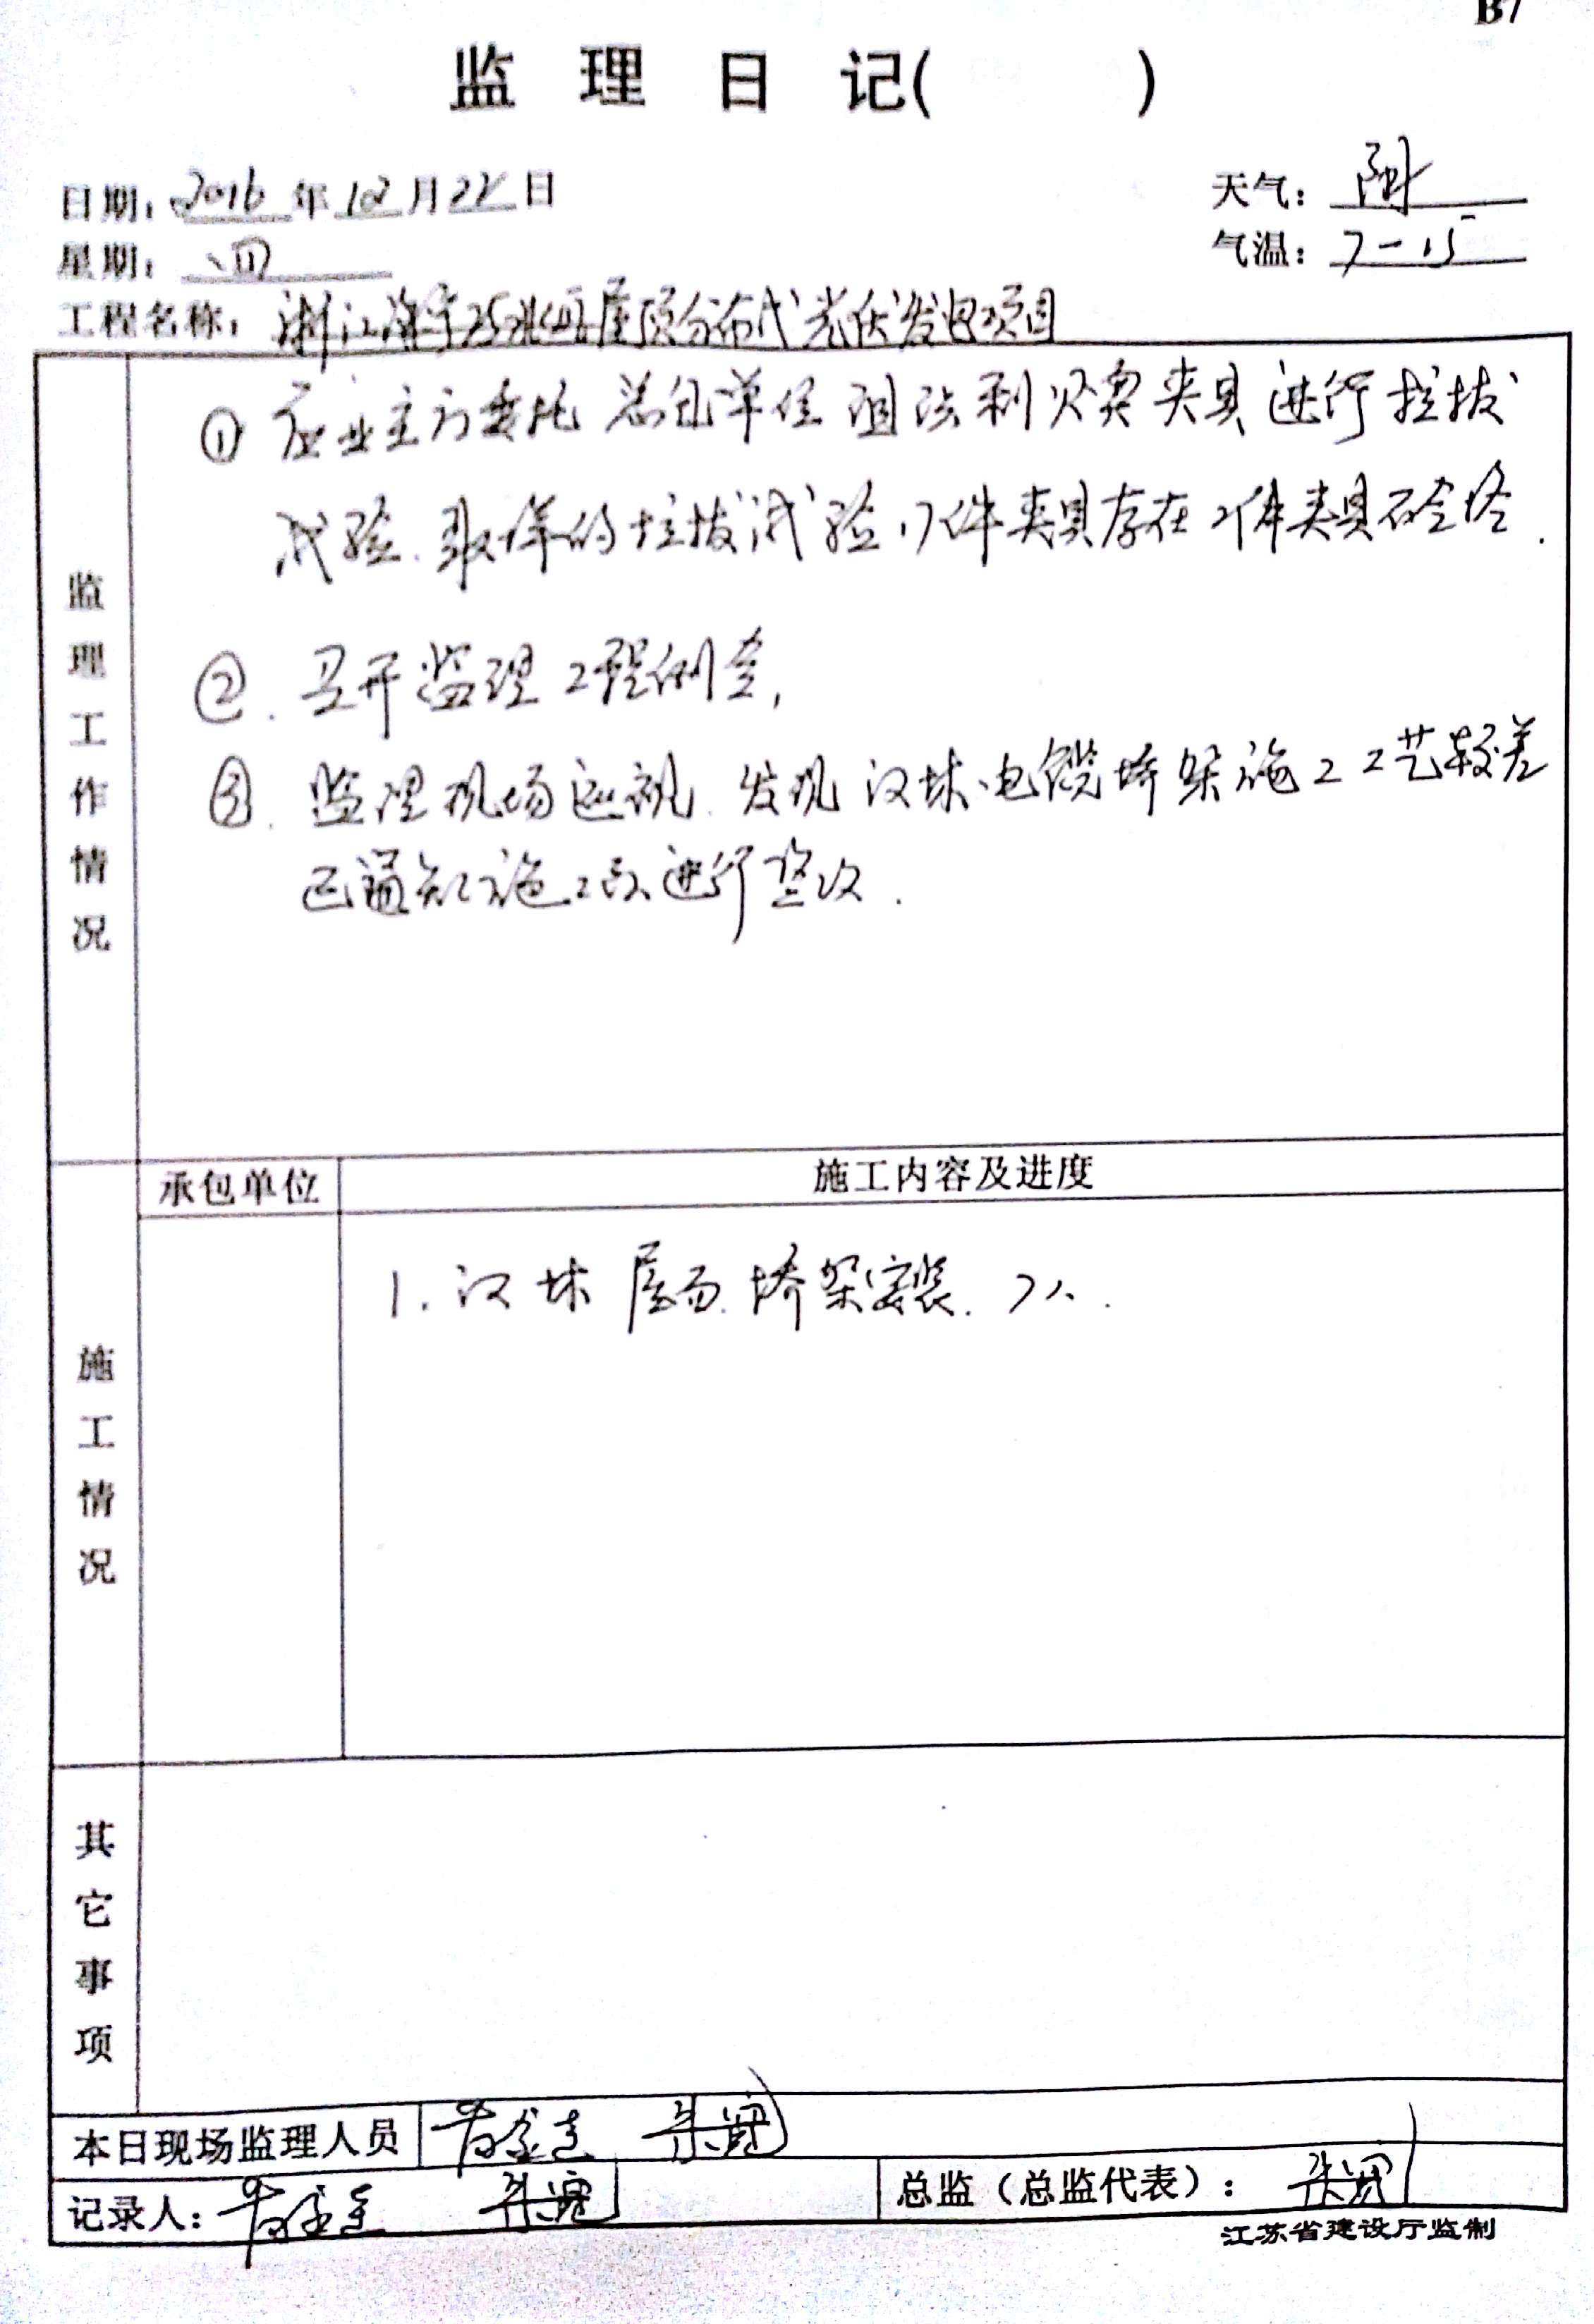 B7
监 理 日 记( )
日期：2016年12月22日
天气：阴
星期：四
气温：7-15
工程名称：浙江海宁25兆瓦屋顶分布式光伏发电项目
监理工作情况
① 应业主方委托 总包单位 夹具进行拉拔
试验.取样的拉拔试验,17件夹具存在2件夹具不合格.
②. 召开监理工程例会,
③. 监理现场巡视.发现汉林电缆桥架施工工艺较差
已通知施工队进行整改.
承包单位
施工内容及进度
施工情况
1.汉林屋面桥架安装. 7人.
其它事项
本日现场监理人员
记录人：
总监（总监代表）：
江苏省建设厅监制